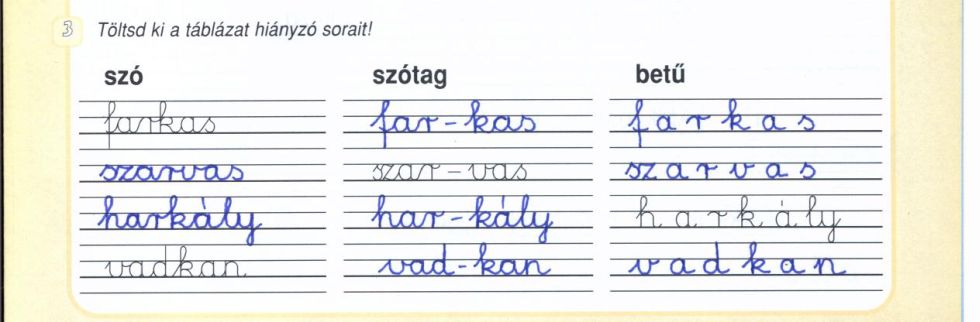 3 Töltsd ki a táblázat hiányzó sorait!
szó szótag betű
farkas far-kas f a r k a s
szarvas szar-vas sz a r v a s
harkály har-kály h a r k á ly
vadkan vad-kan v a d k a n